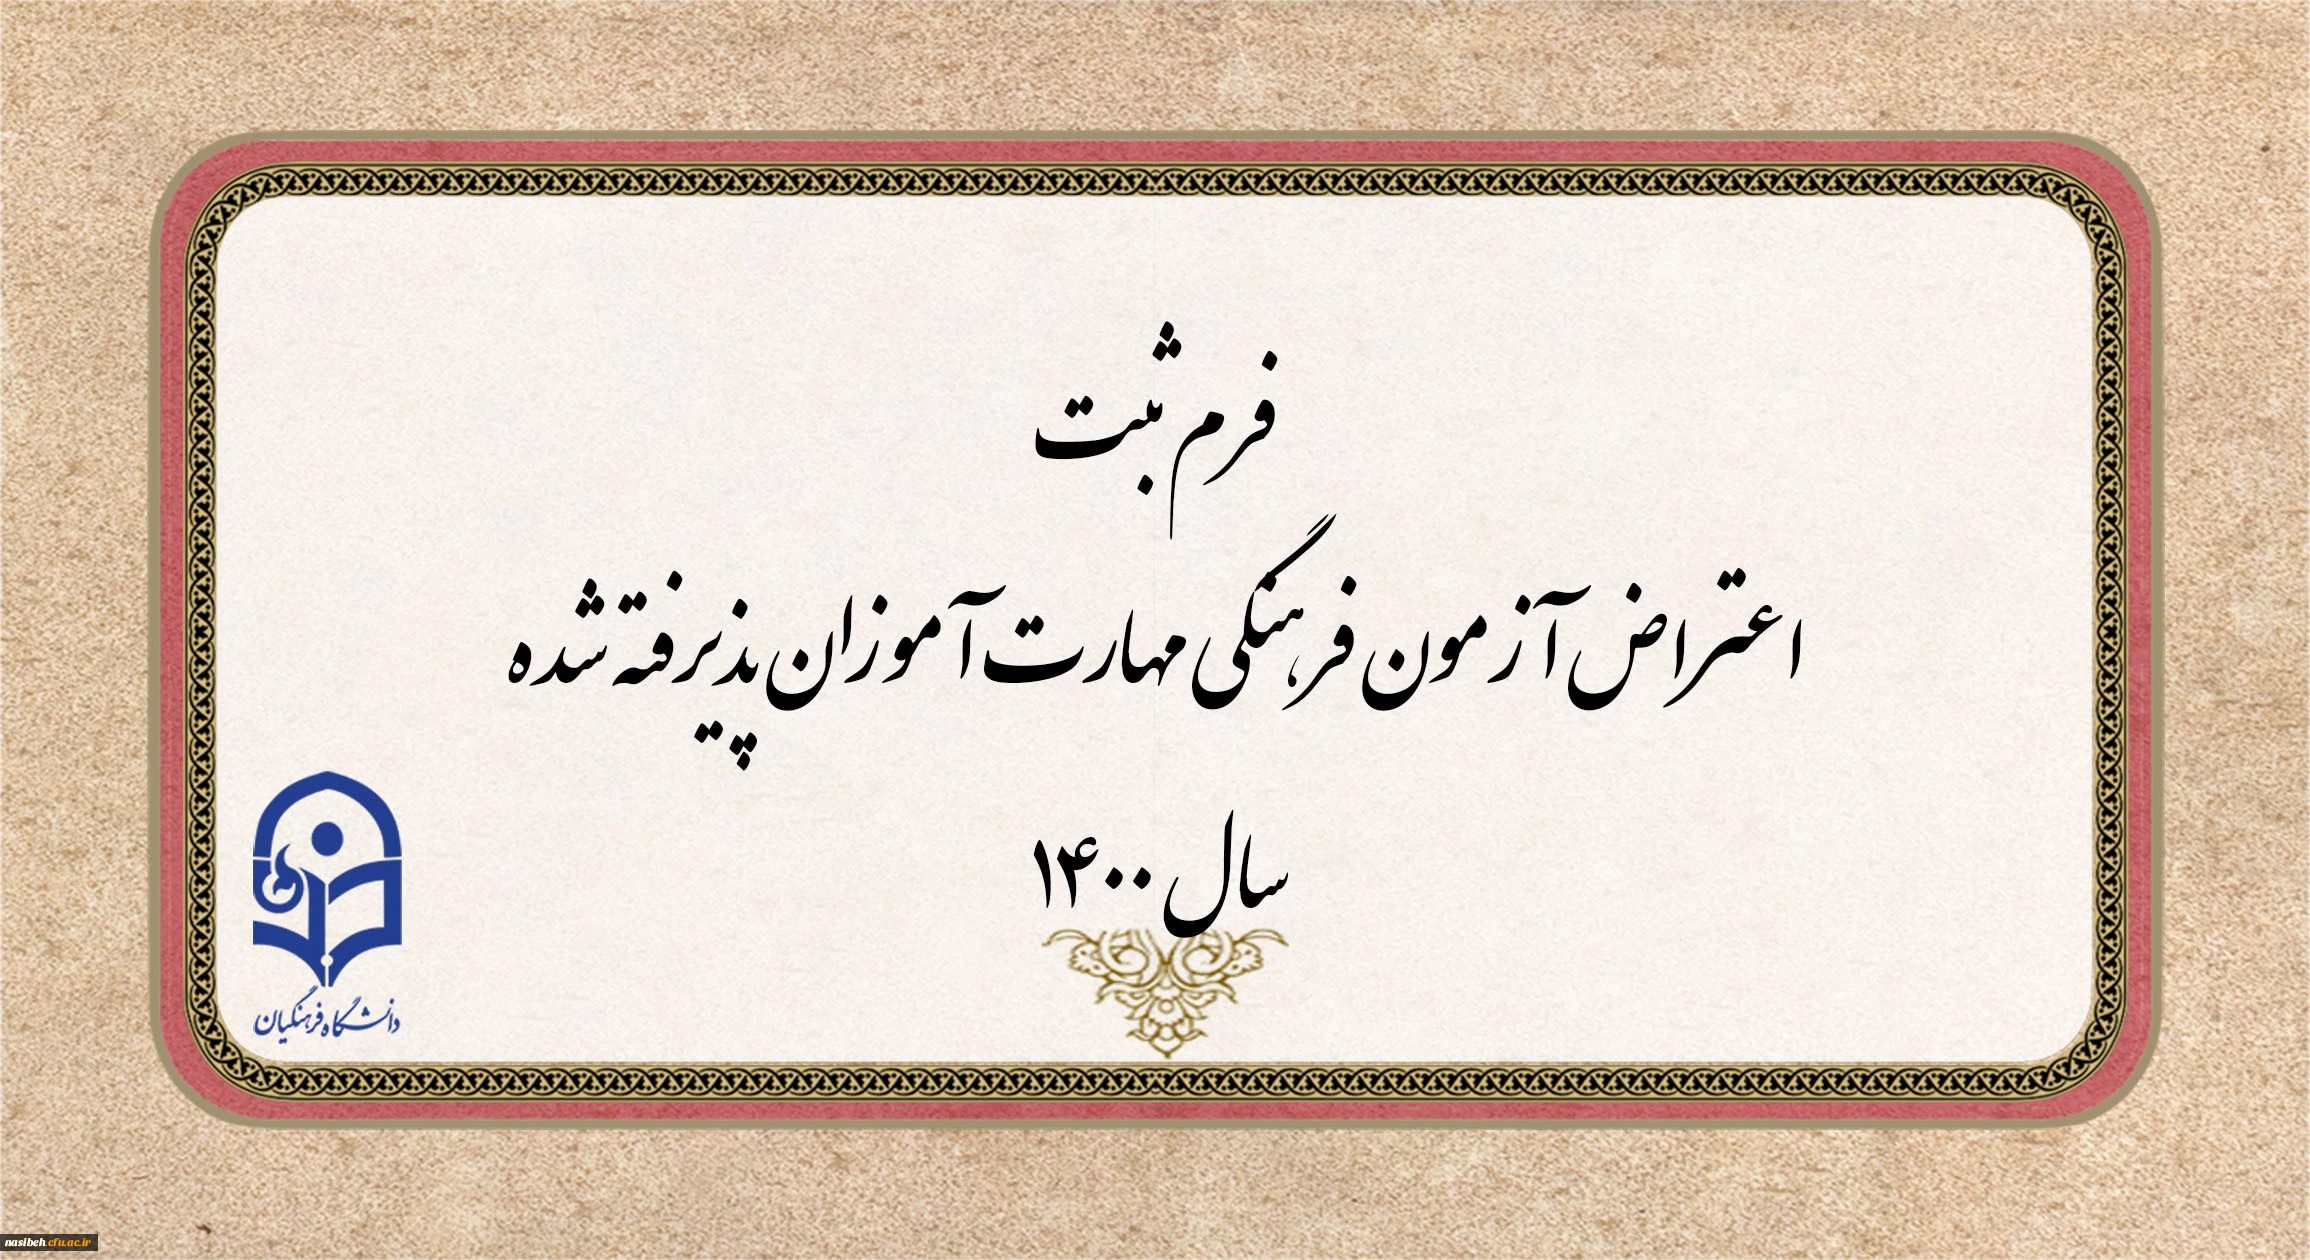 فرم ثبت
اعتراض آزمون فرهنگی مهارت آموزان پذیرفته شده
سال ۱۴۰۰
دانشگاه فرهنگیان
nasibeh.cfu.ac.ir